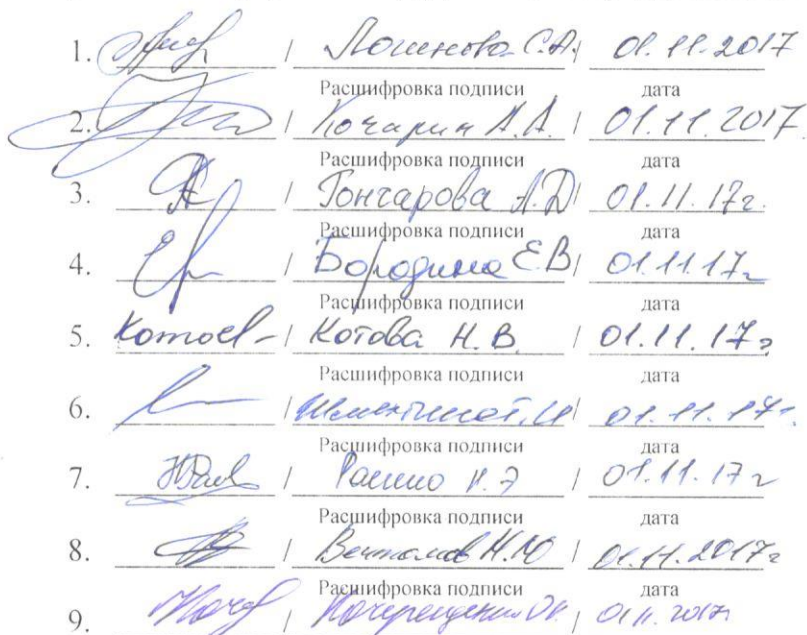 1. / С.А. / 01.11.2017
Расшифровка подписи дата
2. / Кочарин А.А. / 01.11.2017
Расшифровка подписи дата
3. / Гончарова А.Д / 01.11.17г.
Расшифровка подписи дата
4. / Бородина Е.В / 01.11.17г
Расшифровка подписи дата
5. / Котова Н.В. / 01.11.17г
Расшифровка подписи дата
6. / / 01.11.17г.
Расшифровка подписи дата
7. / / 01.11.17г
Расшифровка подписи дата
8. / Н.Ю / 01.11.2017г
Расшифровка подписи дата
9. / / 01.11.2017г.